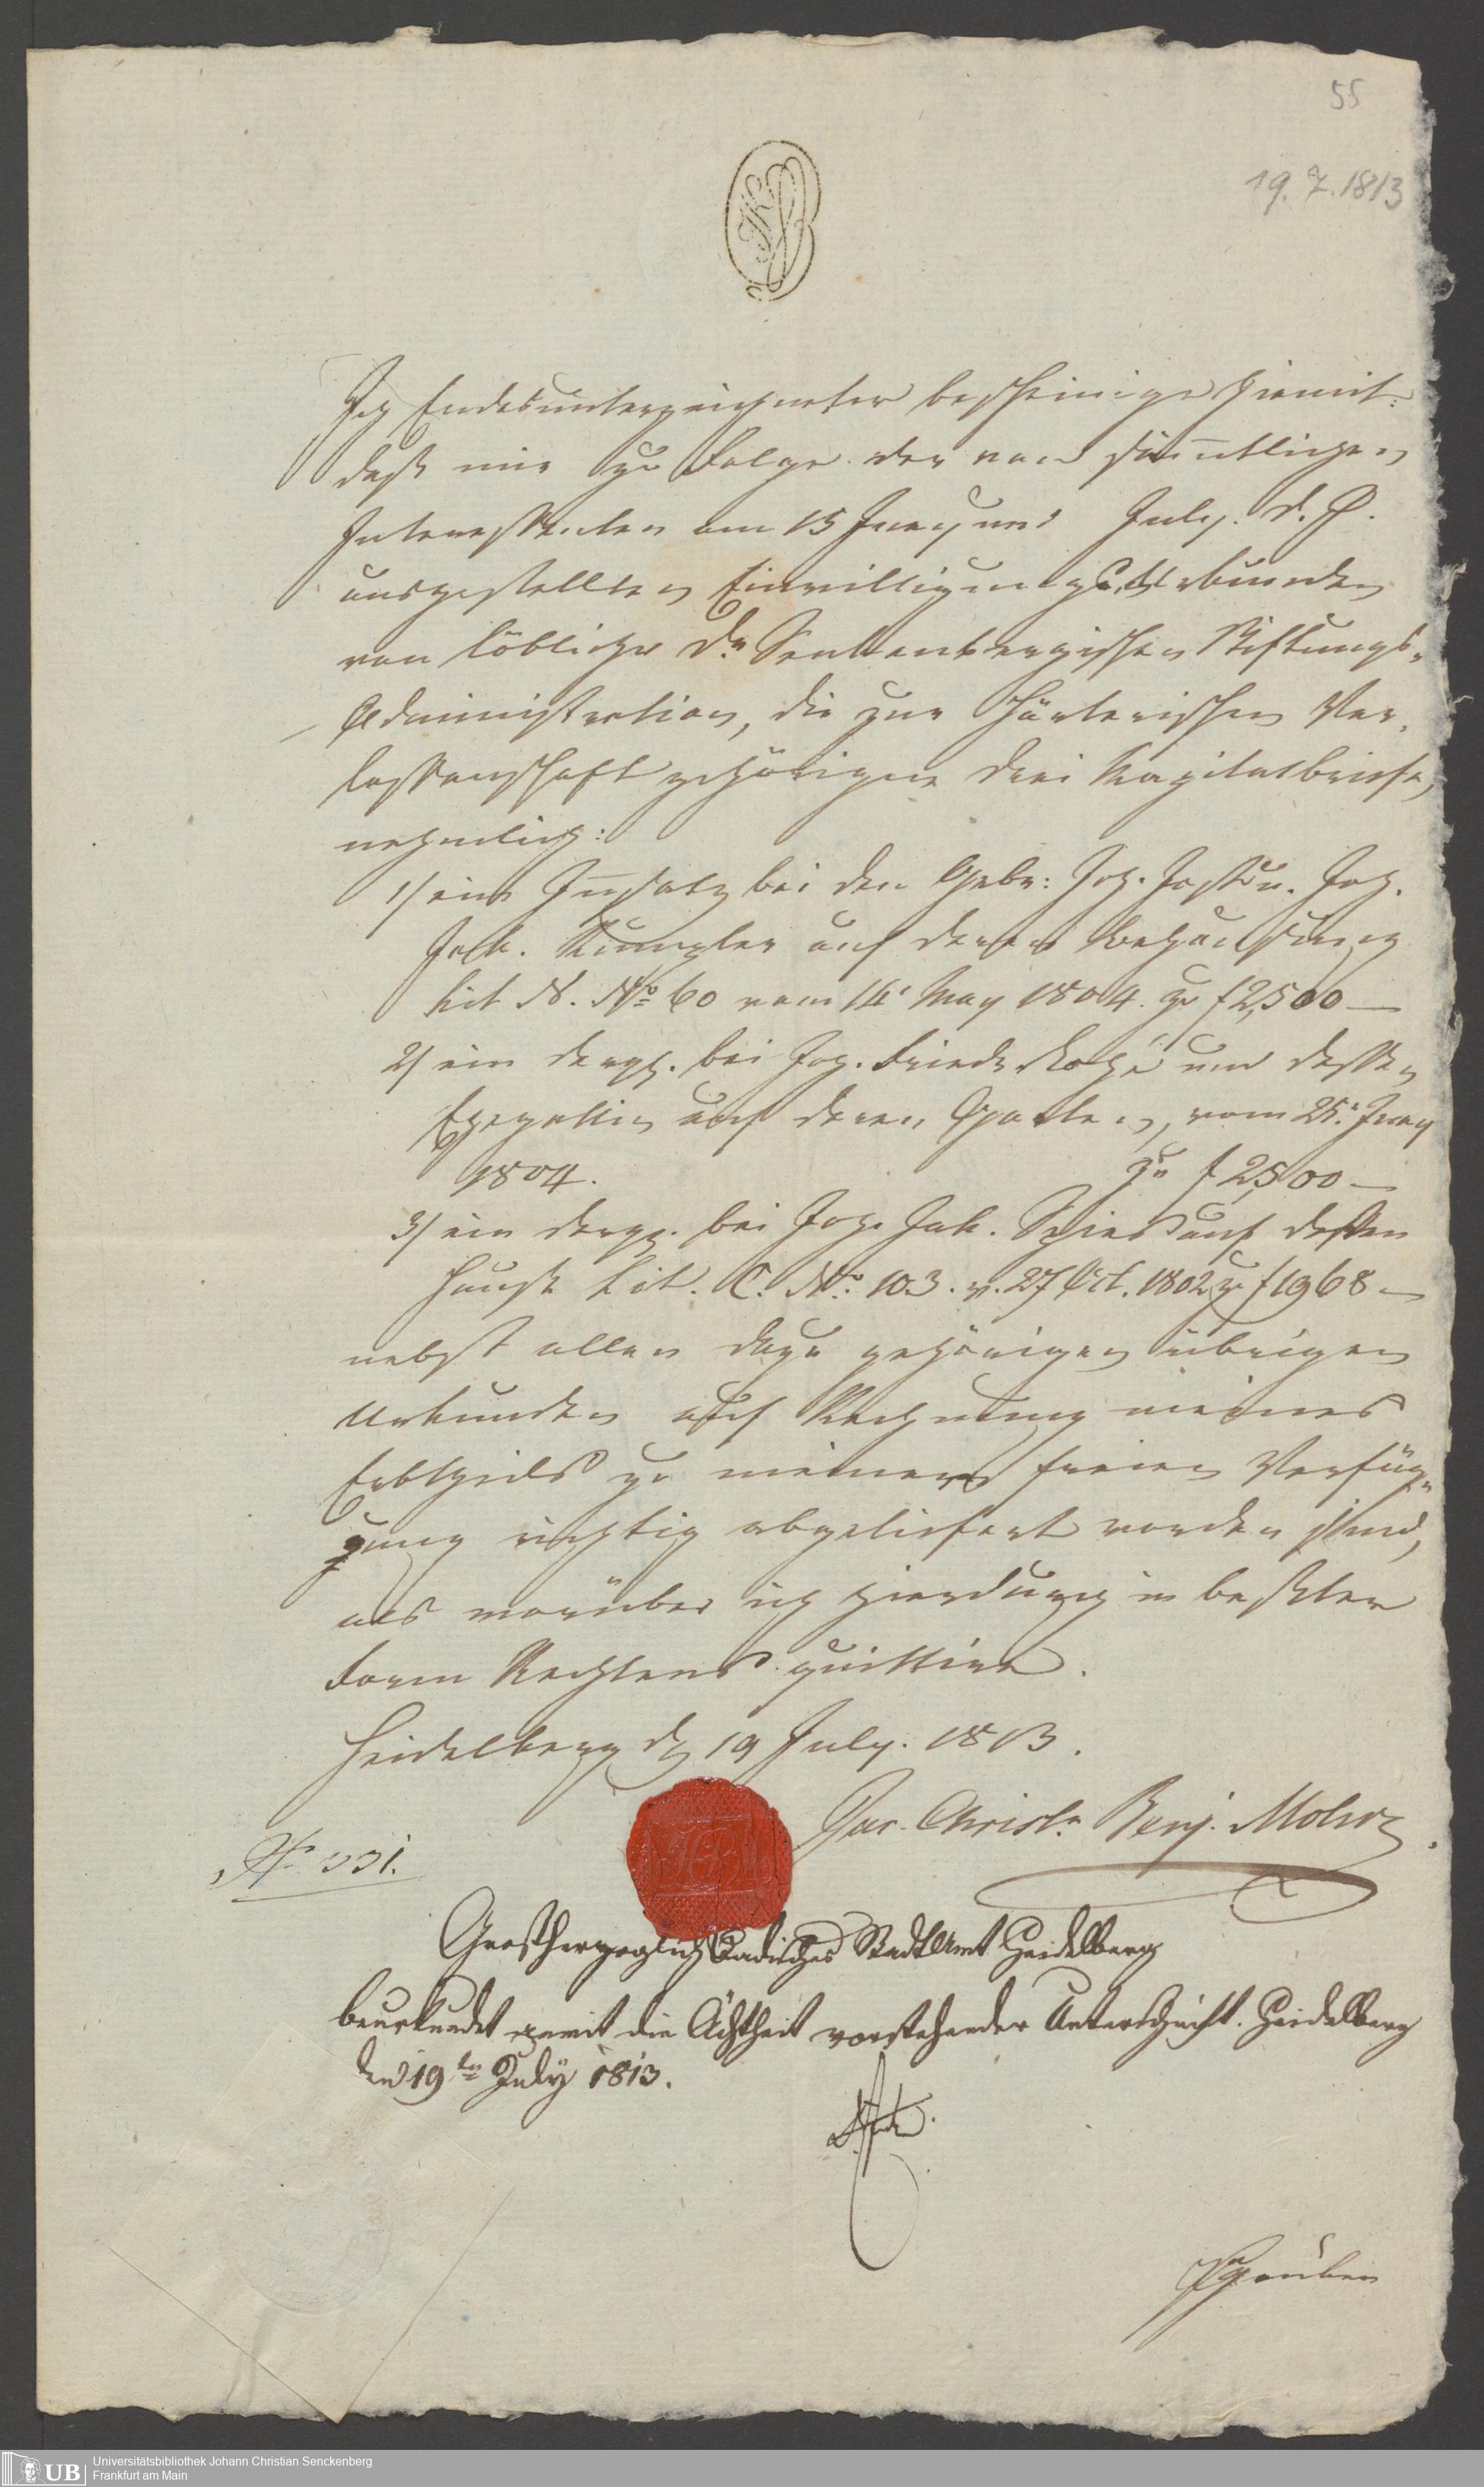 55
19.7.1813
Ich Endesunterzeichneter bescheinige hiemit:
daß mir zu Folge der von sämtlichen
Interessenten am 15 Juny und July. d. J.
ausgestellten Einwilligungs Urkunden
von löblicher Dr. Senkenbergischen Stiftungs-
Administration, die zur Verlassenschaft
lassenschaft gehörigen drei Kapitalbriefe,
nehmlich:
1/ ein Insatz bei den Gebr: Joh. Jost u. Joh.
Jak. auf deren Behausung
Lit N. No. 60 vom 14 May 1804. zu f 2,500 —
2/ ein dergl. bei Joh. Friedr. und dessen
Ehegattin auf deren Garten, vom 25. Juny
1804. zu f 2,500 —
3/ ein dergl. bei Joh. Jak. Spies auf dessen
Hauße Lit. C. No. 103. v. 27 Oct. 1802 zu f 1968 —
nebst allen dazu gehörigen übrigen
Urkunden auf Rechnung meines
Erbtheils zu meiner freien Verfü-
gung richtig abgeliefert worden sind,
als worüber ich hierdurch in bester
Form Rechtens quittire.
Heidelberg d. 19 July. 1813.
Jac. Christn. Benj. Mohr.
N. 331.
Großherzoglich Badisches StadtAmt Heidelberg
beurkundet hiemit die Ächtheit vorstehender Unterschrift. Heidelberg
den 19ten July 1813.
UB
Universitätsbibliothek Johann Christian Senckenberg
Frankfurt am Main